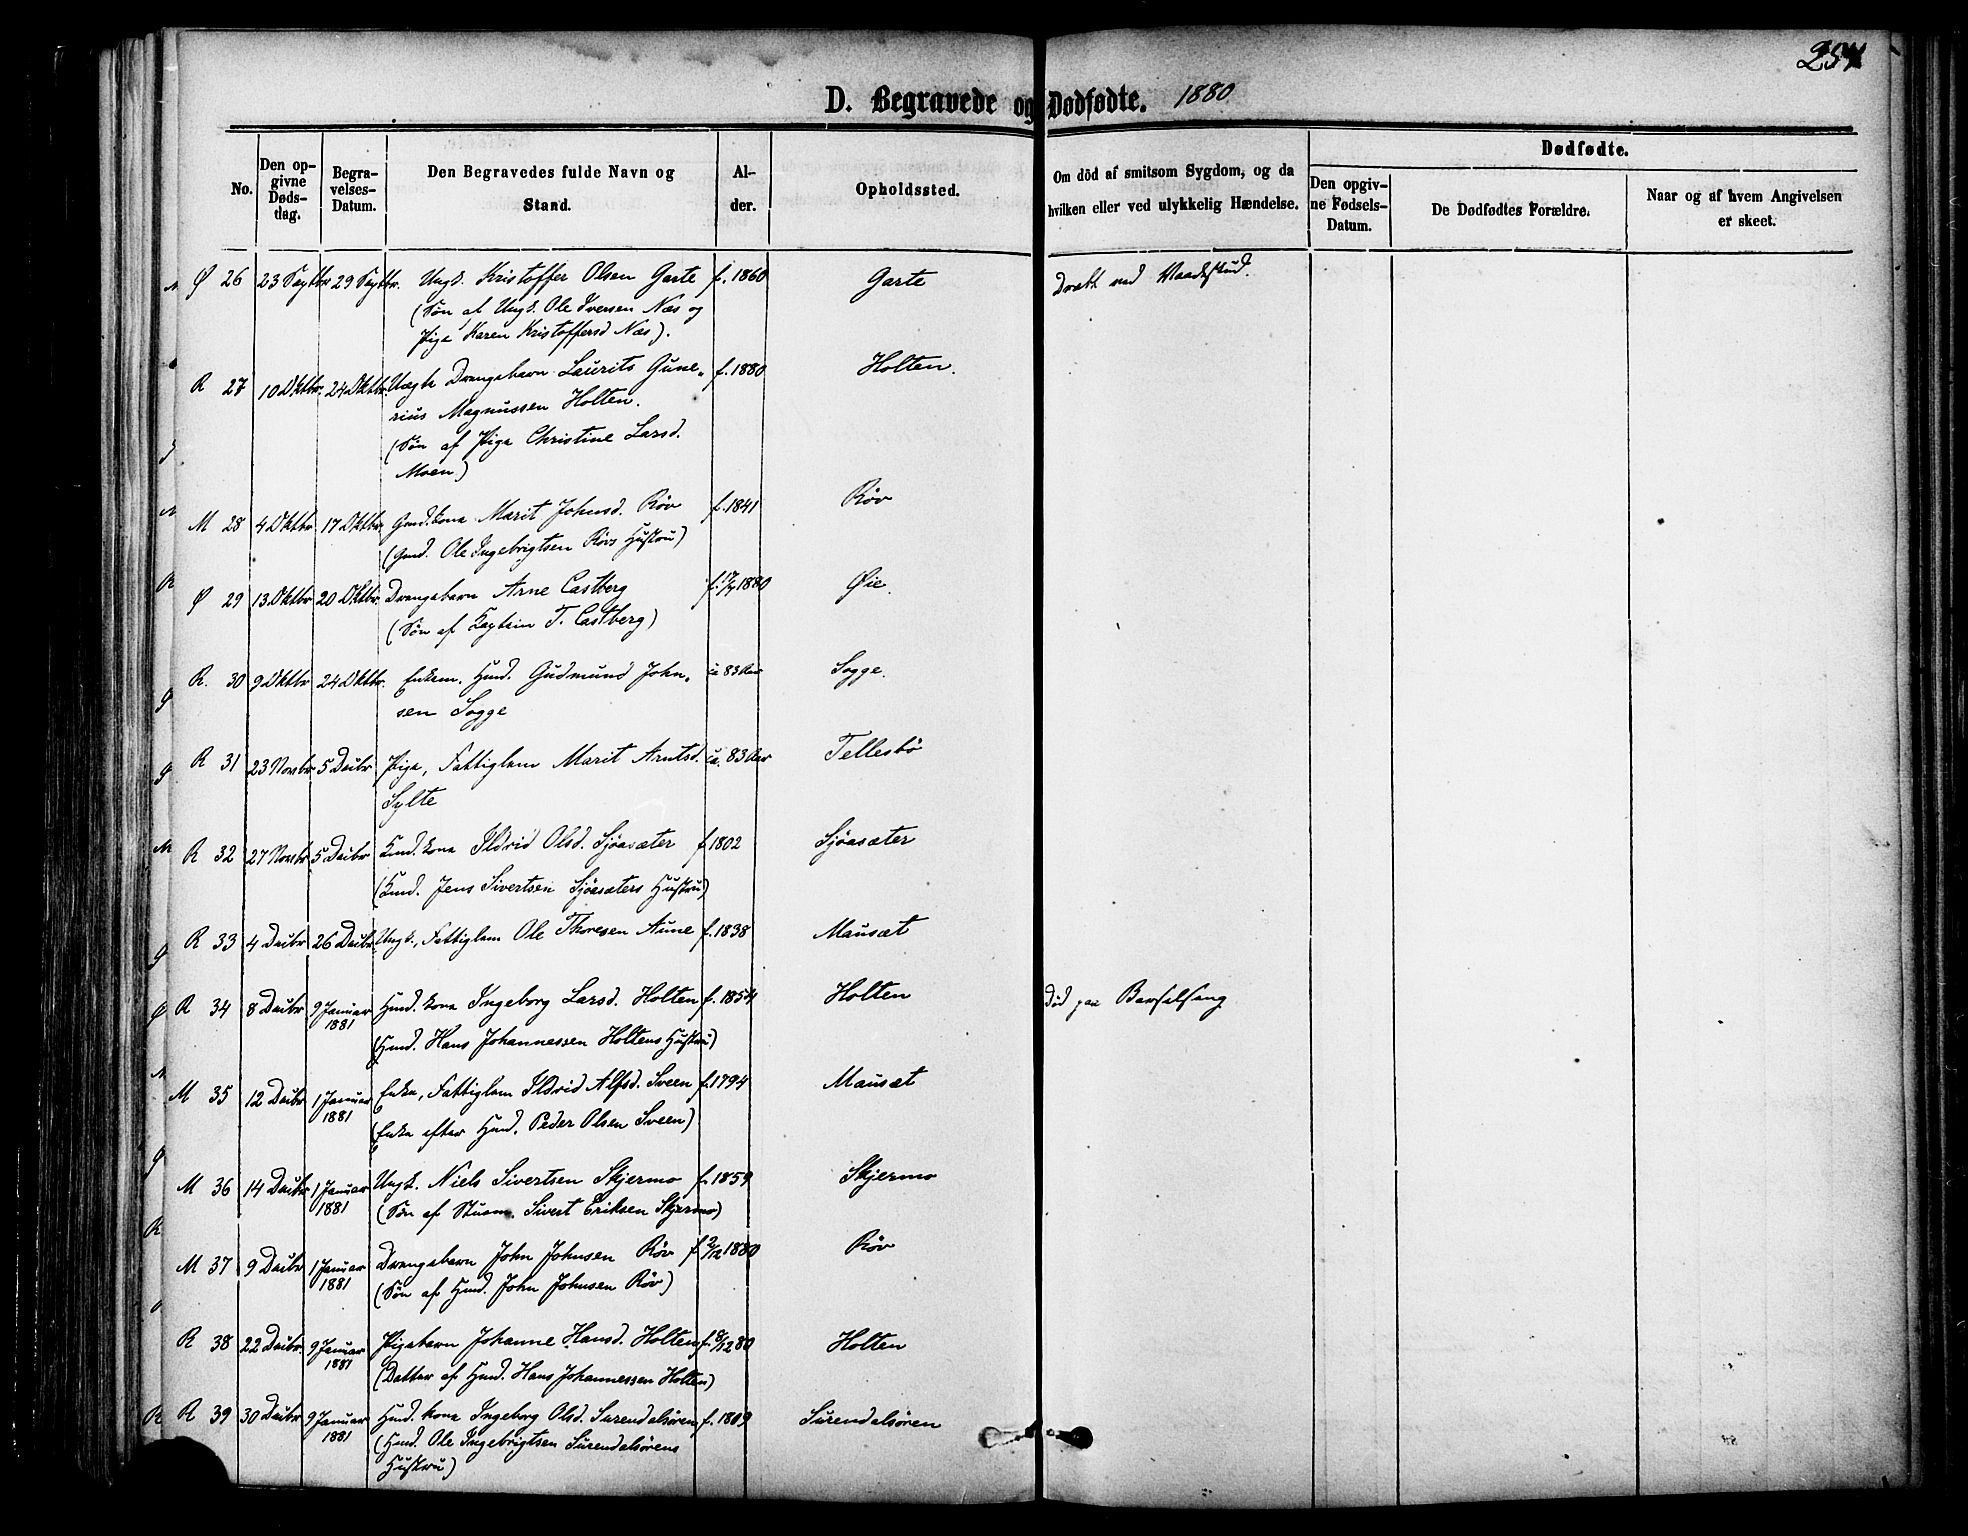 254
D. Begravede og Dødfødte. 1880
No.
Den op-
givne
Døds-
dag.
Begra-
velses-
Datum.
Den Begravedes fulde Navn og
Stand.
Al-
der.
Opholdssted.
Om död af smitsom Sygdom, og da
hvilken eller ved ulykkelig Hændelse.
Dødfødte.
Den opgiv-
ne Fødsels-
Datum.
De Dødfødtes Forældre.
Naar og af hvem Angivelsen
er skeet.
Ø 26 23 Septbr 29 Septbr. Ungk. Kristoffer Olsen Garte f. 1860 Garte Dræbt ved Vaadeskud.
(Søn af Ungk. Ole Iversen Næs og
Pige Karen Kristoffersd Næs).
R 27 10 Oktbr. 24 Oktbr. Uægte Drengebarn Laurits Gune- f. 1880 Holten.
rius Magnussen Holten.
(Søn af Pige Christine Larsd.
Moen)
M 28 4 Oktbr. 17 Oktbr. Gmd.kone Marit Johnsd. Røv f. 1841 Røv
(Gmd. Ole Ingebrigtsen Røvs Hustru)
Ø 29 13 Oktbr 20 Oktbr. Drengebarn Arne Castberg 1880 Øie.
(Søn af Kaptein T. Castberg)
R. 30 9 Oktbr 24 Oktbr. Enkem. Husd. Gudmund John- ca 83 Aar Sogge.
sen Sogge
R 31 23 Novbr 5 Decbr Pige, Fattiglem Marit Arntsd. ca. 83 Aar Tellesbö
Sylte
R 32 27 Novbr 5 Decbr kone Ildrid Olsd. Sjøasæter f 1802 Sjøasæter
(Jens Sivertsen Sjøasæters Hustru)
R 33 4 Decbr 26 Decbr Ungk., Fattiglem Ole Thoresen Aune f. 1838 Mausæt
R 34 8 Decbr 9 Januar Husd. kone Ingeborg Larsd. Holten f. 1854 Holten Død paa Barselseng
1881
(Husd. Hans Johannessen Holtens Hustru)
M 35 12 Decbr 1 Januar Enke, Fattiglem Ildrid Alfsd. Sveen f. 1794 Mausæt
1881
(Enke efter Husd. Peder Olsen Sveen)
M 36 14 Decbr 1 Januar Ungk. Niels Sivertsen Skjermo f. 1859 Skjermo
1881
(Søn af Sivert Eriksen Skjermo)
M 37 9 Decbr 1 Januar Drengebarn John Johnsen Røv f. 2/12 1880 Røv
1881
(Søn af Husd. John Johnsen Røv)
R 38 22 Decbr. 9 Januar Pigebarn Johanne Hansd. Holten f. 8/12 80 Holten
1881
(Datter af Husd. Hans Johannessen Holten)
R 39 30 Decbr 9 Januar Husd. kone Ingeborg Olsd. Surendalsøren f. 1809 Surendalsøren
1881
(Husd. Ole Ingebrigtsen Surendalsørens
Hustru)